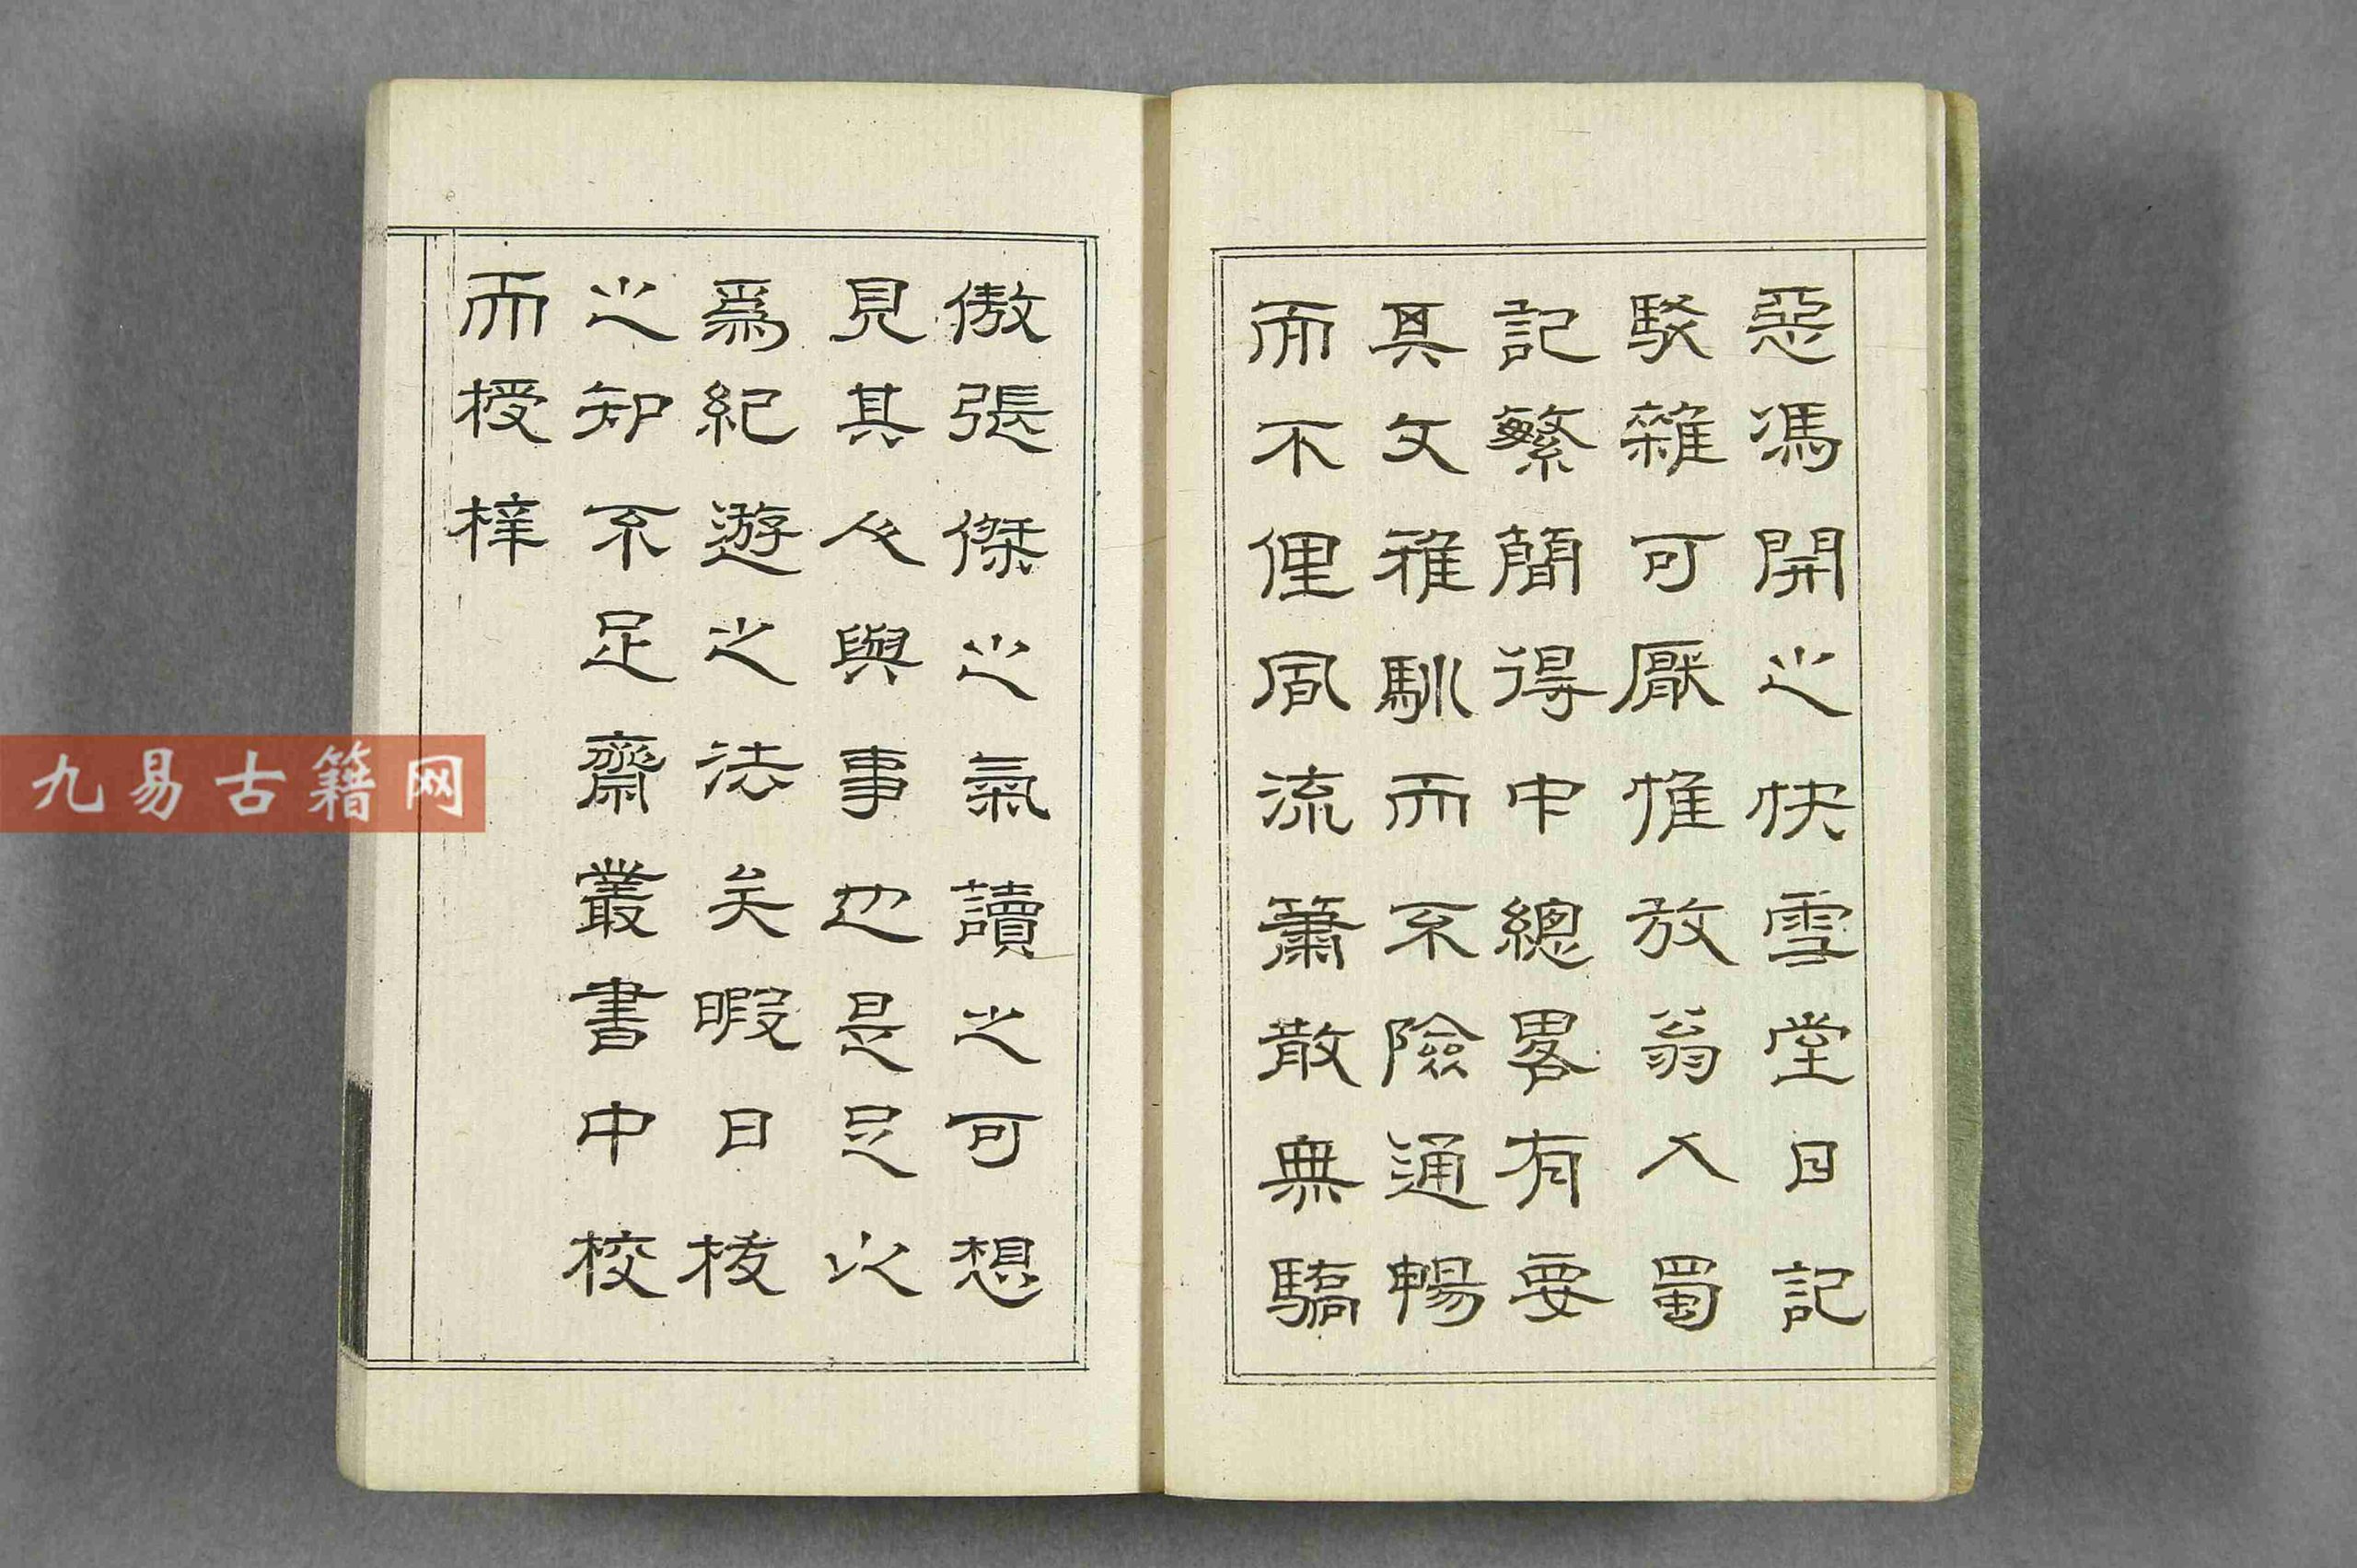 惡馮開之快雪堂日記
駁雜可厭惟放翁入蜀
記繁簡得中總畧有要
其文雅馴而不險通暢
而不俚風流蕭散無驕
傲張傑之氣讀之可想
見其人與事也是足以
爲紀遊之法矣暇日拔
之知不足齋叢書中校
而授梓
九易古籍网